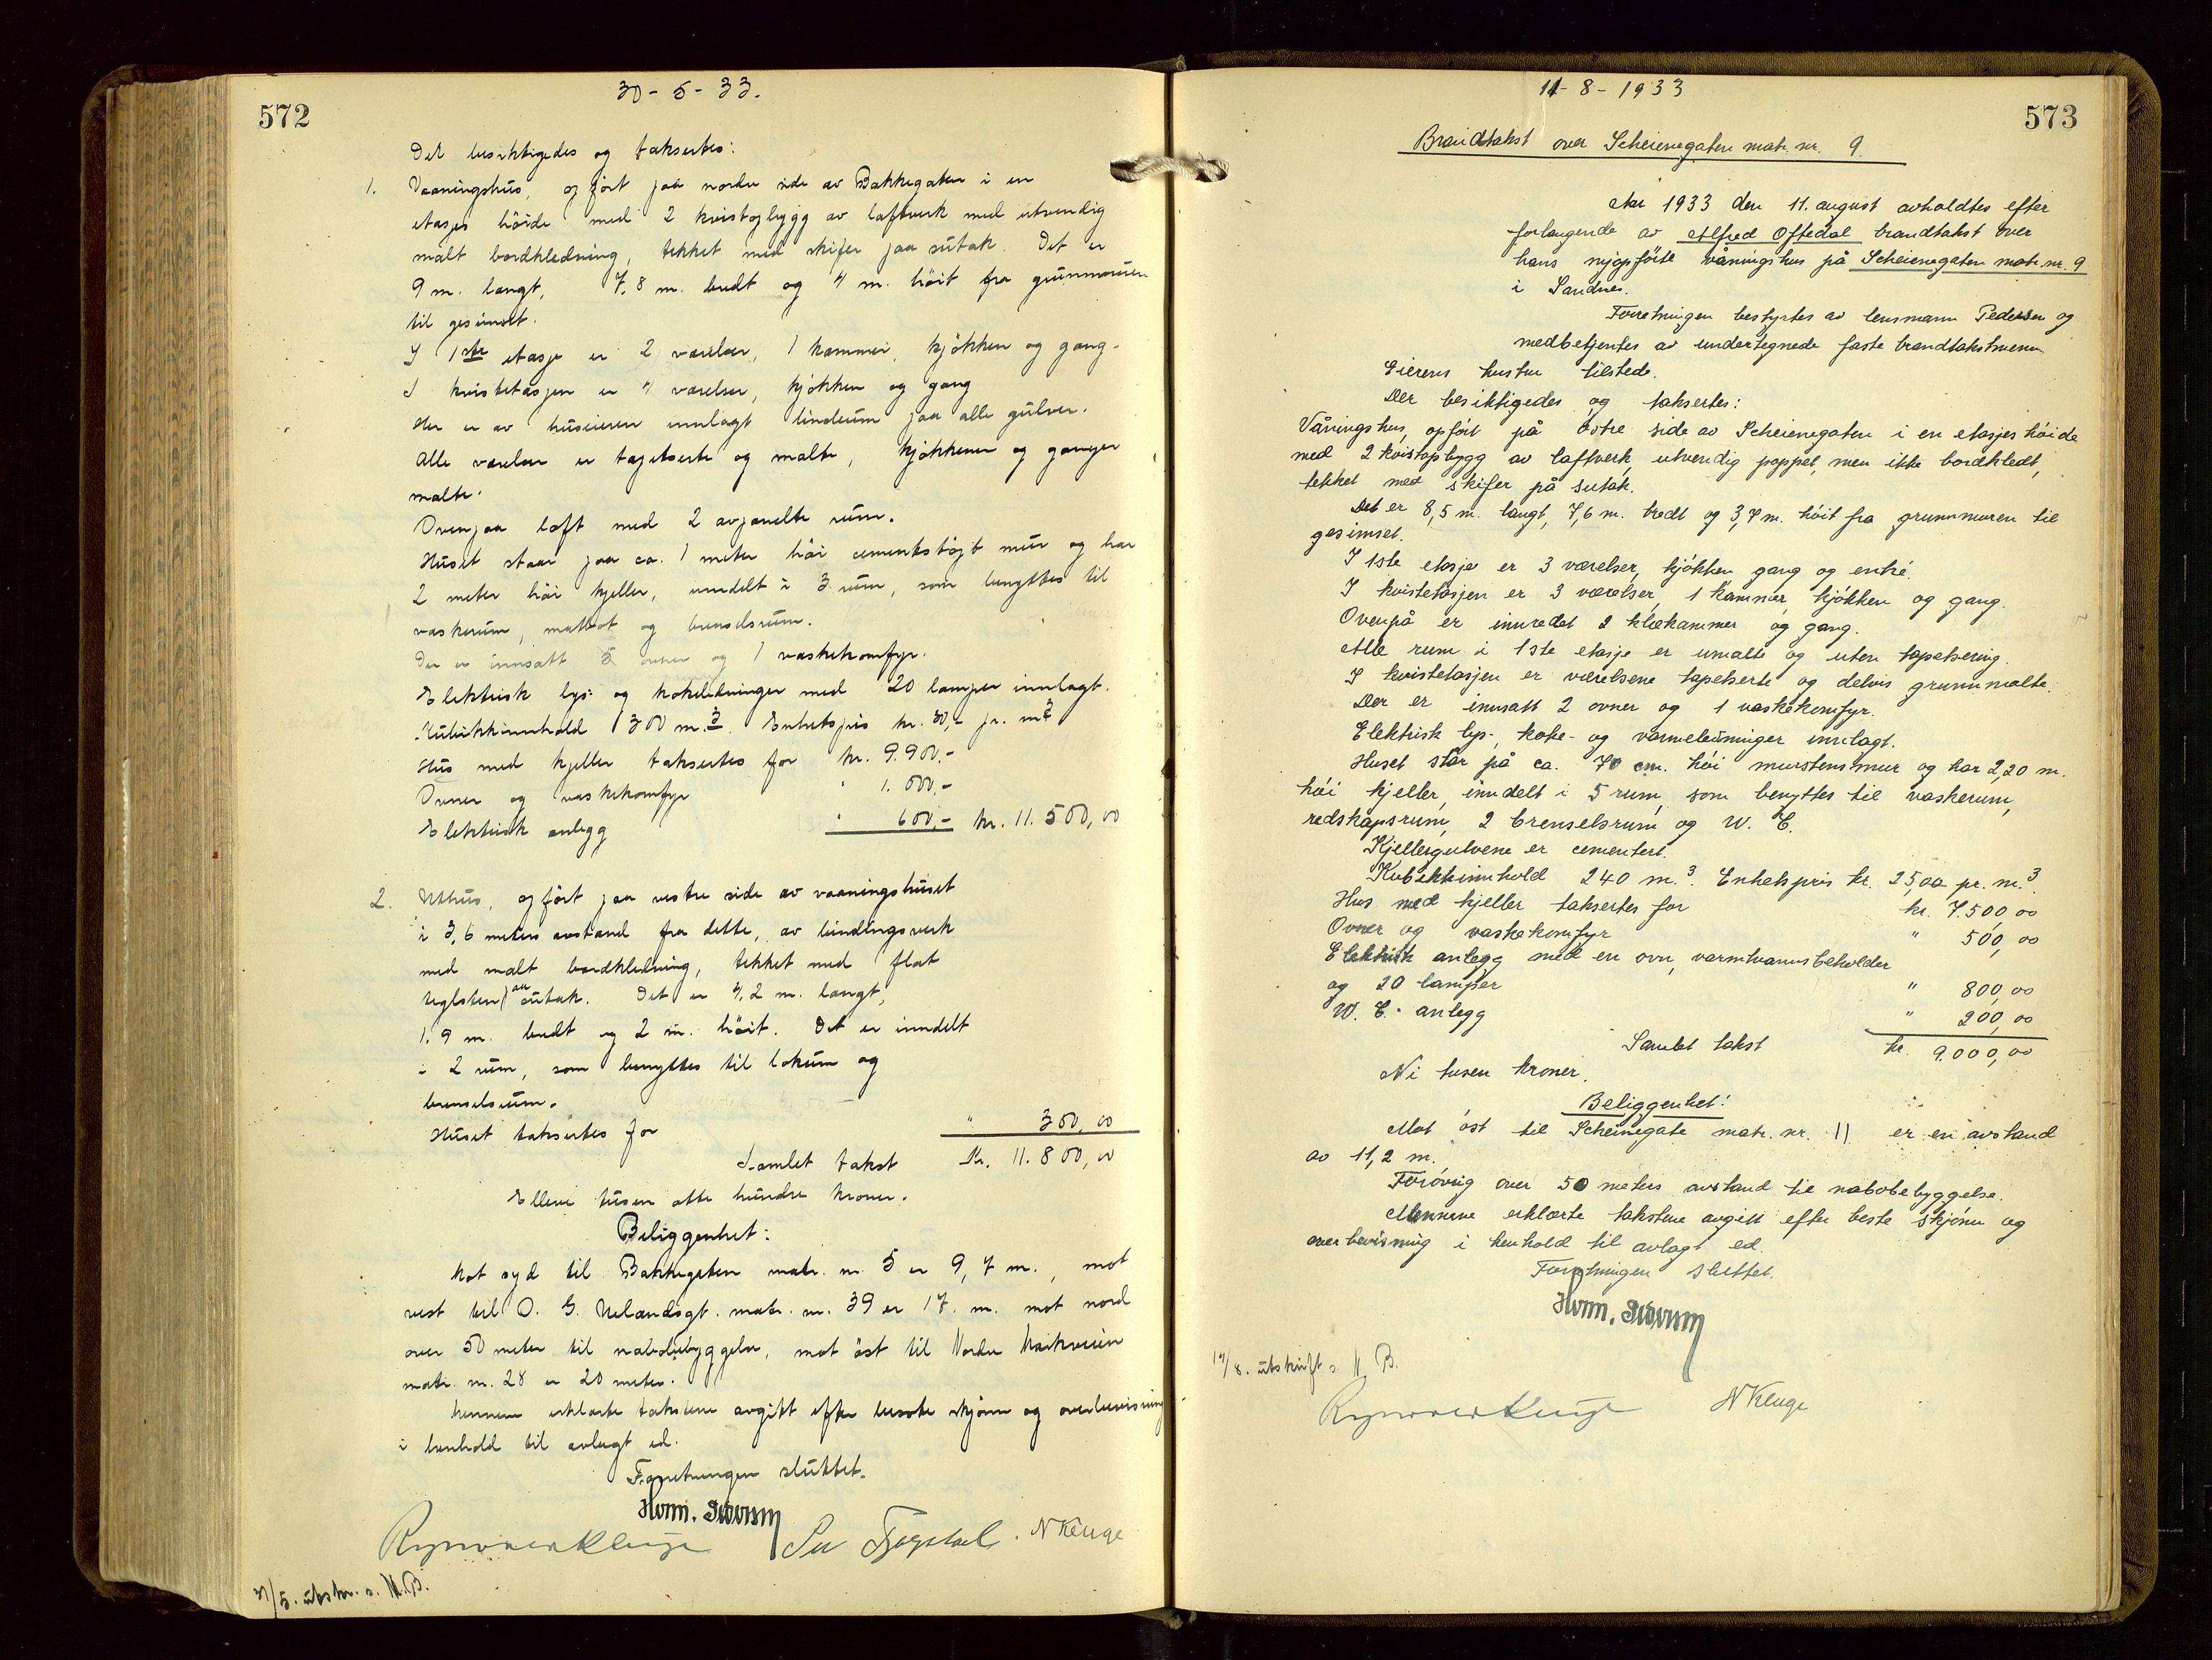 572
30-5-33.
Det besiktigedes og taksertes:
1. Vaaningshus, opført paa nordre side av Bakkegaten i en
etasjes höide med 2 kvistopbygg av laftverk med utvendig
malt bordkledning, tekket med skifer paa sutak. Det er
9 m. langt, 7,8 m. bredt og 4 m. höit fra grunnmuren
til gesimset.
I 1ste etasje er 2 værelser, 1 kammer, kjökken og gang.
I kvistetasjen er 4 værelser, kjökken og gang
Her er av huseieren innlagt linoleum paa alle gulver.
Alle værelser er tapetserte og malte, kjökkener og ganger
malte.
Ovenpaa loft med 2 avpanelte rum.
Huset staar paa ca. 1 meter höi cementstöpt mur og har
2 meter höi kjeller, inndelt i 3 rum, som benyttes til
vaskerum, matbod og brenselsrum.
Der er innsatt 5 ovner og 1 vaskekomfyr.
Elektrisk lys- og kokeledninger med 20 lamper innlagt.
Kubikkinnhold 300 m.3. Enhetspris kr. 30,- pr. m3
Hus med kjeller taksertes for kr. 9.900,-
Ovner og vaskekomfyr " 1.000,-
Elektrisk anlegg " 600,- kr. 11.500,00
2. Uthus, opfört paa vestre side av vaaningshuset
i 3,6 meters avstand fra dette, av bindingsverk
med malt bordkledning, tekket med flat
teglsten paa sutak. Det er 4,2 m. langt,
1.9 m. bredt og 2 m. höit. Det er inndelt
i 2 rum, som benyttes til lokum og
brenselsrum.
Huset taksertes for " 300,00
Samlet takst Kr. 11.800,00
Elleve tusen otte hundre kroner.
Beliggenhet:
Mot syd til Bakkegaten matr. nr. 5 er 9,7 m., mot
vest til O. G. Uelandsgt. matr. nr. 39 er 17. m. mot nord
over 50 meter til nabobebyggelse, mot öst til Nordre
matr. nr. 28 er 20 meter.
Mennene erklærte takstene avgitt efter beste skjönn og overbevisning
i henhold til avlagt ed.
Forretningen sluttet.
N Kluge
31/5. utskr. s. N.B.
11-8-1933
573
Brandtakst over Scheienegaten matr. nr. 9.
Aar 1933 den 11. august avholdtes efter
forlangende av Alfred Oftedal brandtakst over
hans nyopförte våningshus på Scheienegaten matr. nr. 9
i Sandnes.
Forretningen bestyrtes av lensmann Pedersen og
medbetjentes av undertegnede faste brandtakstmenn
Eierens hustru tilstede.
Der besiktigedes og taksertes:
Våningshus, opfört på östre side av Scheienegaten i en etasjes höide
med 2 kvistopbygg av laftverk, utvendig pappet, men ikke bordkledt,
tekket med skifer på sutak.
Det er 8,5 m. langt, 7,6 m. bredt og 3,7 m. höit fra grunnmuren til
gesimset.
I 1ste etasje er 3 værelser, kjökken gang og entré.
I kvistetasjen er 3 værelser, 1 kammer, kjökken og gang.
Ovenpå er innredet 2 klækammer og gang.
Alle rum i 1ste etasje er umalte og uten tapetsering.
I kvistetasjen er værelsene tapetserte og delvis grunnmalte.
Der er innsatt 2 ovner og 1 vaskekomfyr.
Elektrisk lys-, koke- og varmeledninger innlagt.
Huset står på ca. 70 cm. höi murstensmur og har 2,20 m.
höi kjeller, inndelt i 5 rum, som benyttes til vaskerum,
redskapsrum, 2 brenselsrum og W. C.
Kjellergulvene er cementert.
Kubikkinnhold 240 m.3. Enhetspris kr. 25,00 pr. m.3.
Hus med kjeller taksertes for kr. 7.500,00
Ovner og vaskekomfyr " 500,00
Elektrisk anlegg med en ovn, varmtvannsbeholder
og 20 lamper " 800,00
W. C. anlegg " 200,00
Samlet takst kr. 9.000,00
Ni tusen kroner.
Beliggenhet:
Mot öst til Scheinegate matr. nr. 11 er en avstand
av 11,2 m.
Forövrig over 50 meters avstand til nabobebyggelse.
Mennene erklærte takstene avgitt efter beste skjönn og
overbevisning i henhold til avlagt ed.
Forretningen sluttet.
14/8. utskrift s. N. B.
N Kluge